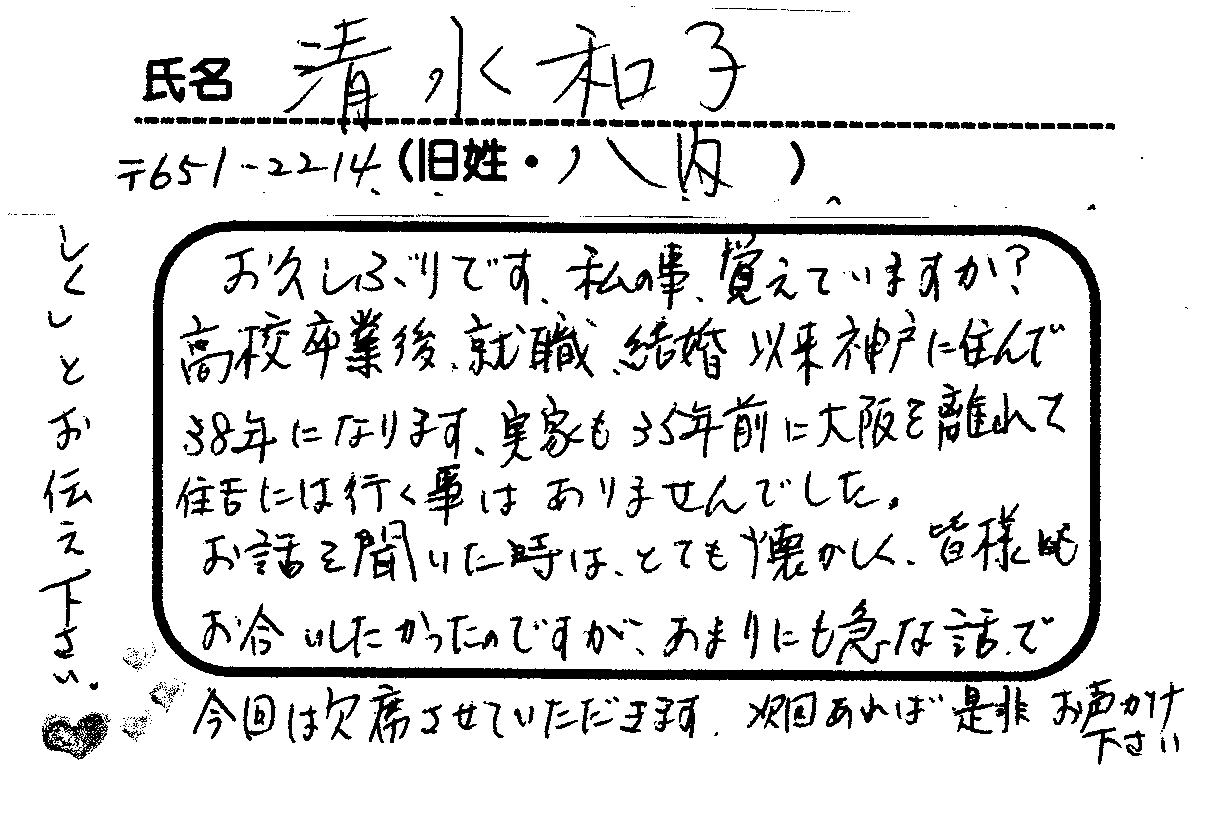 氏名 清水和子
〒651-2214 (旧姓・八内)
お久しぶりです、私の事、覚えていますか?
高校卒業後、就職、結婚以来神戸に住んで
38年になります、実家も35年前に大阪を離れて
住吉には行く事はありませんでした。
お話を聞いた時は、とても懐かしく、皆様にも
お合いしたかったのですが、あまりにも急な話で
今回は欠席させていただきます、次回あれば是非お声かけ
下さい
しくしとお伝え下さい。